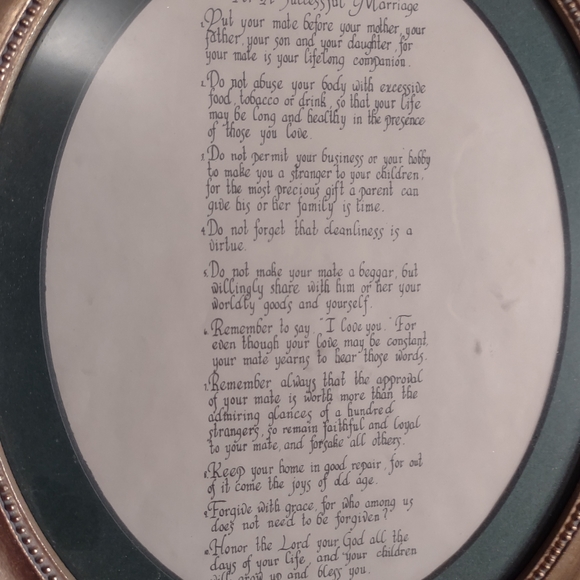 For A Successful Marriage
1. Put your mate before your mother, your
father, your son and your daughter, for
your mate is your lifelong companion.
2. Do not abuse your body with excessive
food, tobacco or drink, so that your life
may be long and healthy in the presence
of those you love.
3. Do not permit your business or your hobby
to make you a stranger to your children,
for the most precious gift a parent can
give his or her family is time.
4. Do not forget that cleanliness is a
virtue.
5. Do not make your mate a beggar, but
willingly share with him or her your
worldly goods and yourself.
6. Remember to say, "I love you." For
even though your love may be constant,
your mate yearns to hear those words.
7. Remember always that the approval
of your mate is worth more than the
admiring glances of a hundred
strangers, so remain faithful and loyal
to your mate, and forsake all others.
8. Keep your home in good repair, for out
of it come the joys of old age.
9. Forgive with grace, for who among us
does not need to be forgiven?
10. Honor the Lord your God all the
days of your life, and your children
will grow up and bless you.